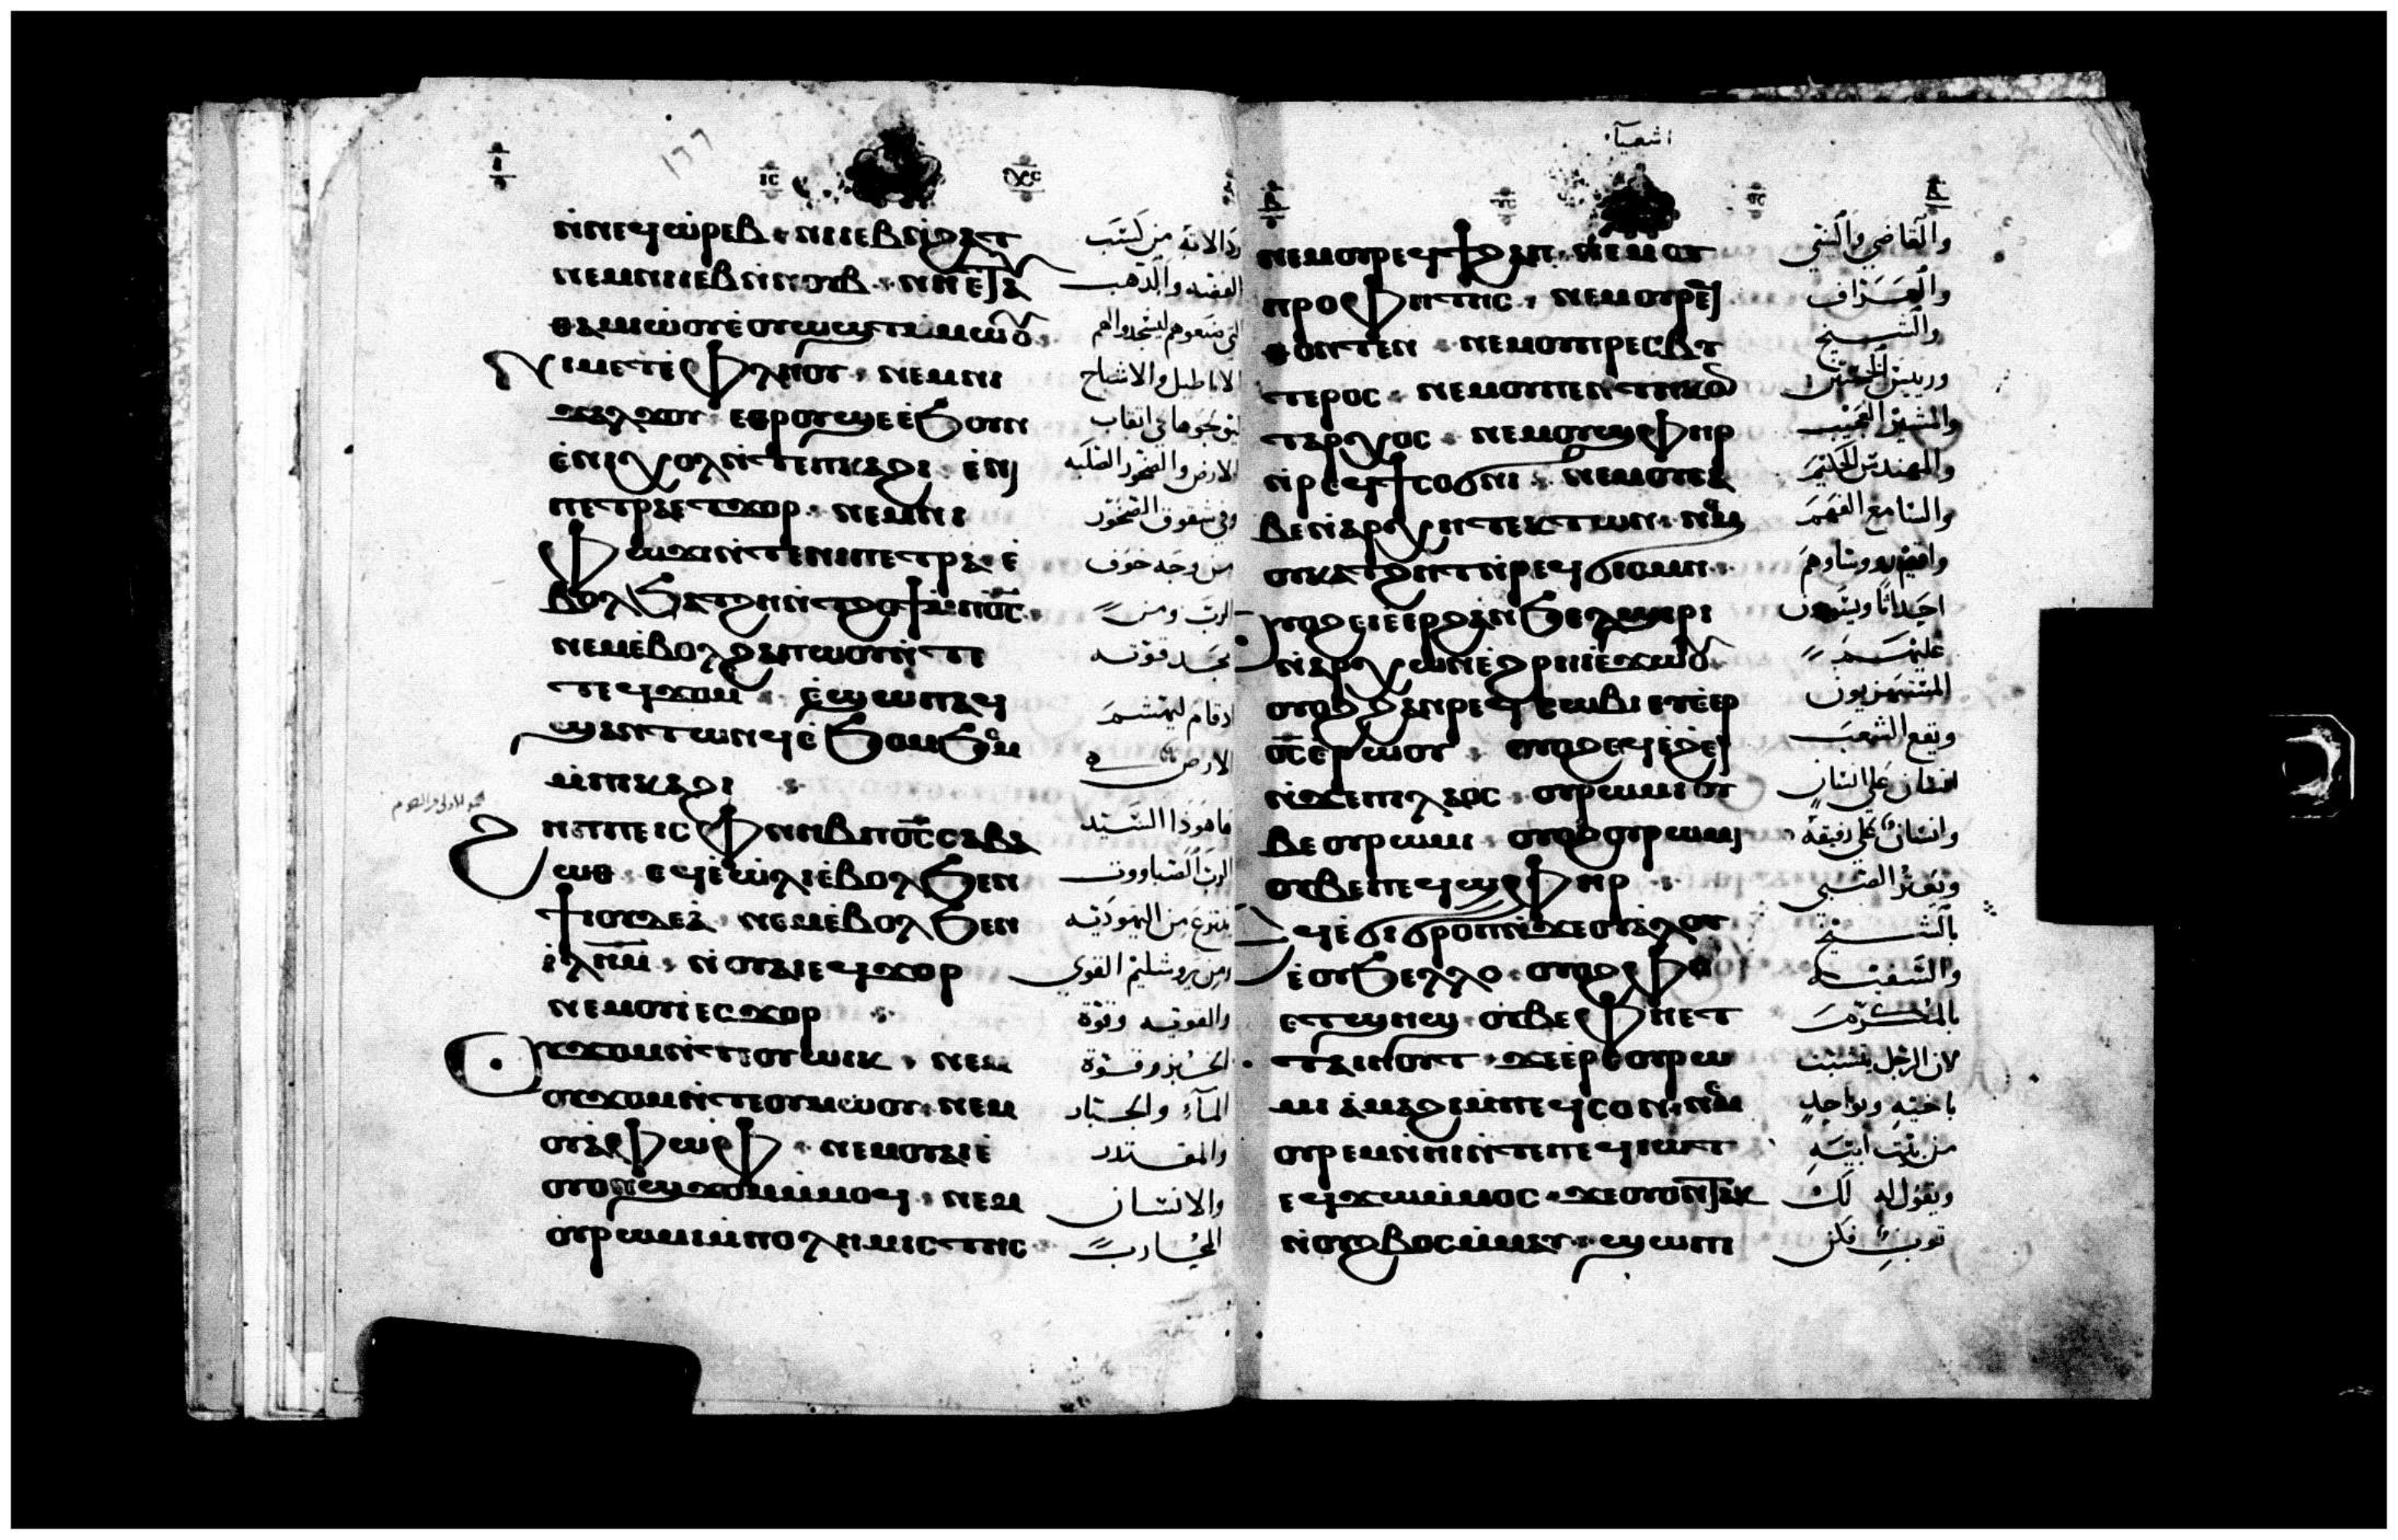 ⲛ̀ⲛⲉϥⲱ̀ⲣⲉⲃ ⲛⲓⲉⲃⲛⲓϩⲁⲧ
ⲛⲉⲙⲛⲓⲉⲃⲛ̀ⲛⲟⲩⲃ ⲛⲏⲉ̄ⲧⲁ
ⲑⲁⲙⲓⲱⲟⲩⲉ̀ⲟⲩⲱϣⲧⲙ̀ⲙⲱⲟⲩ
ⲛⲓⲙⲉⲧⲉ̀ⲫⲗⲏⲟⲩ ⲛⲉⲙⲛⲓ
ϫⲁⲗϫⲟⲩ ⲉⲑⲣⲟⲩϣⲉⲉ̀ϧⲟⲩⲛ
ⲉ̀ⲛⲓⲭⲟⲗⲛ̀ⲧⲉⲡⲕⲁϩⲓ ⲉ̀ⲛⲓ
ⲡⲉⲧⲣⲁⲉⲧϫⲟⲣ ⲛⲉⲙⲛⲓ
ⲫⲱϫⲓⲛ̀ⲧⲉⲛⲓⲡⲉⲧⲣⲁ ⲉ̀
ⲃⲟⲗϧⲁⲧϩⲏⲛ̀ⲧϩⲟϯⲙ̀ⲡⲟ̅ⲥ̅
ⲛⲉⲙⲉ̀ⲃⲟⲗϩⲁⲡⲱⲟⲩⲛ̀ⲧⲉ
ⲧⲉϥϫⲟⲙ ⲉ̀ϣⲱⲡⲁϥ
ϣⲁⲛⲧⲱⲛϥⲉ̀ϧⲟⲙϧⲉⲙ
ⲙ̀ⲡⲕⲁϩⲓ
ϩⲏⲡⲡⲉⲓⲥⲫⲛⲏⲃⲡⲟ̅ⲥ̅ⲥⲁⲃⲁ
ⲱⲑ ⲉϥⲉ̀ⲱ̀ⲗⲓⲉ̀ⲃⲟⲗϧⲉⲛ
ϯⲓⲟⲩⲇⲉⲁ̀ ⲛⲉⲙⲉ̀ⲃⲟⲗϧⲉⲛ
ⲓ̀ⲗ̅ⲏ̅ⲙ̅ ⲛ̀ⲟⲩⲁⲓⲉϥϫⲟⲣ
ⲛⲉⲙⲟⲩⲓ̀ⲉⲥϫⲟⲣ
ⲟⲩϫⲟⲙⲛ̀ⲧⲉⲟⲩⲱⲓⲕ ⲛⲉⲙ
ⲟⲩϫⲟⲙⲛ̀ⲧⲉⲟⲩⲙⲱⲟⲩ ⲛⲉⲙ
ⲟⲩⲁⲫⲱⲫ ⲛⲉⲙⲟⲩⲁⲓⲉ̀
ⲟⲩⲟⲛϣϫⲟⲙⲙ̀ⲙⲟϥ ⲛⲉⲙ
ⲟⲩⲣⲱⲙⲓⲙ̀ⲡⲟⲗⲏⲙⲓⲥⲧⲏⲥ
الفضه والذهب
التي صنعوهم ليسجدوا لهم
الاباطيل والاشباح
الارض والصخور الصلبه
وفي شقوق الصخور
من وجه خوف
الرب ومن
مجد قوته
اذا قام ليهشم
الارض
هاهوذا السيد
الرب الصباووت
ينزع من اليهوديه
ومن يروشليم القوي
والقويه وقوة
الخبز وقوة
المآء والجبار
والمقتدر
والانسان
المحارب
اشعيآء
ⲛⲉⲙⲟⲩⲣⲉϥϯϩⲁⲡ ⲛⲉⲙⲟⲩ
ⲡⲣⲟⲫⲏⲧⲏⲥ ⲛⲉⲙⲟⲩⲣⲉϥ
ⲑⲟⲛⲧⲉⲛ ⲛⲉⲙⲟⲩⲡⲣⲉⲥⲃⲩ
ⲧⲉⲣⲟⲥ ⲛⲉⲙⲟⲩⲡⲉⲛⲧⲏⲕⲟ
ⲧⲁⲣⲭⲟⲥ ⲛⲉⲙⲟⲩϣⲫⲏⲣ
ⲛ̀ⲣⲉϥϯⲥⲟϭⲛⲓ ⲛⲉⲙⲟⲩⲥⲁ
ⲃⲉⲛ̀ⲁⲣⲭⲏⲧⲉⲕⲧⲱⲛ ⲛⲉⲙ
ⲟⲩⲕⲁⲧϩⲏⲧⲛ̀ⲣⲉϥϭⲓⲥⲙⲏ
ⲟⲩⲟϩⲉⲓⲉ̀ⲉⲣϩⲁⲛϧⲉⲗϣⲓⲣⲓ
ⲛ̀ⲁⲣⲭⲱⲛⲉ̀ϩⲣⲏⲓⲉ̀ϫⲱⲟⲩ
ⲟⲩⲟϩϩⲁⲛⲣⲉϥⲥⲱⲃⲓⲉⲩⲉ̀ⲉⲣ
ⲟ̅ⲥ̅ⲉ̀ⲣⲱⲟⲩ ⲟⲩⲟϩⲉϥⲉ̀ϩⲉⲓ
ⲛ̀ϫⲉⲡⲓⲗⲁⲟⲥ ⲟⲩⲣⲱⲙⲓⲟⲩ
ⲃⲉⲟⲩⲣⲱⲙⲓ ⲟⲩⲟϩⲟⲩⲣⲱⲙⲓ
ⲟⲩⲃⲉⲡⲉϥϣⲫⲏⲣ
ⲉϥⲉ̀ϭⲓϭⲣⲟⲡⲛ̀ϫⲉⲟⲩⲁⲗⲟⲩ
ⲉ̀ⲟⲩϧⲉⲗⲗⲟ ⲟⲩⲟϩⲫⲏ
ⲉⲧϣⲏϣ ⲟⲩⲃⲉⲫⲏⲉⲧ
ⲧⲁⲓⲏⲟⲩⲧ ϫⲉⲉⲣⲉⲟⲩⲣⲱ
ⲙⲓ ⲁ̀ⲙⲁϩⲓⲙ̀ⲡⲉϥⲥⲟⲛ ⲛⲉⲙ
ⲟⲩⲣⲉⲙⲛ̀ⲏⲓⲛ̀ⲧⲉⲡⲉϥⲓⲱⲧ
ⲉϥϫⲱⲙ̀ⲙⲟⲥ ϫⲉⲟⲩⲟⲛⲧⲁⲕ
ⲛ̀ⲟⲩϩⲃⲟⲥⲙ̀ⲙⲁⲩ ϣⲱⲡⲓ
والقاضي والنبي
والعراف
والشيخ
والمشير العجيب
والمهندس الحكيم
والسامع الفهم
احداثا
عليهم
المستهزيون
ويقع الشعب
انسان على انسان
وانسان على رفيقه
ويعثر الصبي
بالشيخ
والسفيه
بالمكرم
لان الرجل يتشبت
باخيه
من بيت ابيه
ويقول له لك
ثوب فكن